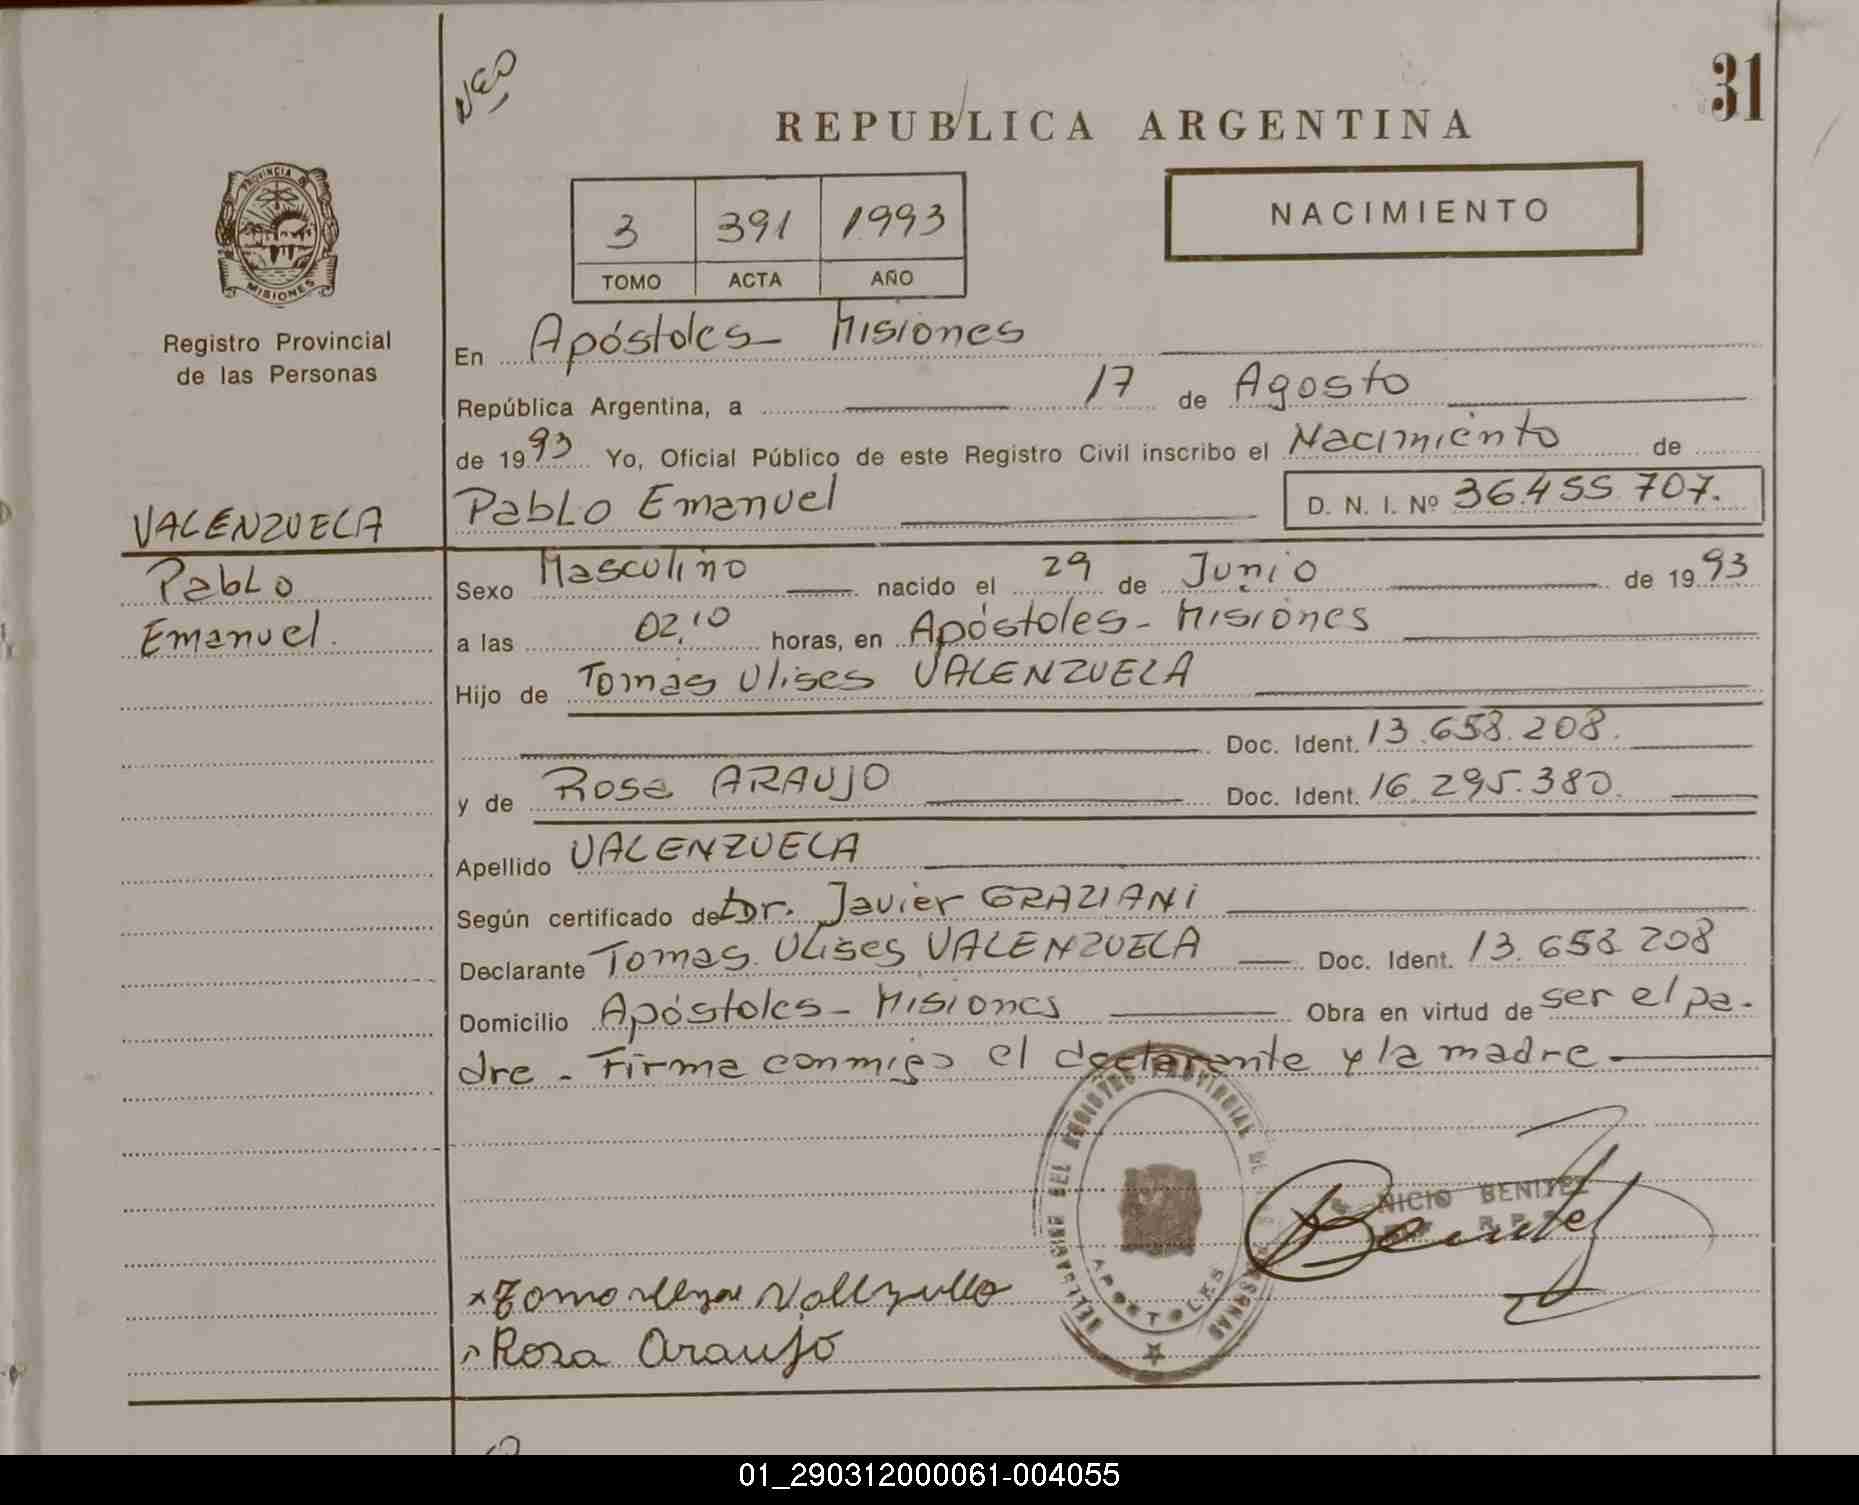 NEO
31
REPUBLICA ARGENTINA
PROVINCIA DE
MISIONES
3 391 1993
TOMO ACTA AÑO
NACIMIENTO
Registro Provincial
de las Personas
En Apóstoles - Misiones
República Argentina, a 17 de Agosto
de 1993 Yo, Oficial Público de este Registro Civil inscribo el Nacimiento de
Pablo Emanuel D. N. I. Nº 36.455.707.
VALENZUELA
Pablo
Emanuel.
Sexo Masculino nacido el 29 de Junio de 1993
a las 02,10 horas, en Apóstoles - Misiones
Hijo de Tomas Ulises VALENZUELA
Doc. Ident. 13.658.208.
y de Rosa ARAUJO Doc. Ident. 16.295.380.
Apellido VALENZUELA
Según certificado de Dr. Javier GRAZIANI
Declarante Tomas Ulises VALENZUELA Doc. Ident. 13.658.208
Domicilio Apóstoles - Misiones Obra en virtud de ser el pa-
dre - Firma conmigo el declarante y la madre
REGISTRO PROVINCIAL DE LAS PERSONAS
APOSTOLES
NICIO BENITEZ
Rosa Araujo
01_290312000061-004055